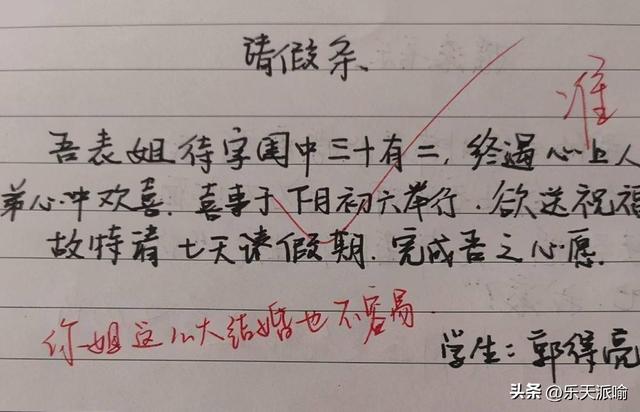 请假条
准
吾表姐待字闺中三十有二，终遇心上人
弟心中欢喜．喜事于下月初六举行．欲送祝福
故特请七天请假期．完成吾之心愿．
你姐这么大结婚也不容易
学生：郭得亮
头条 @乐天派喻